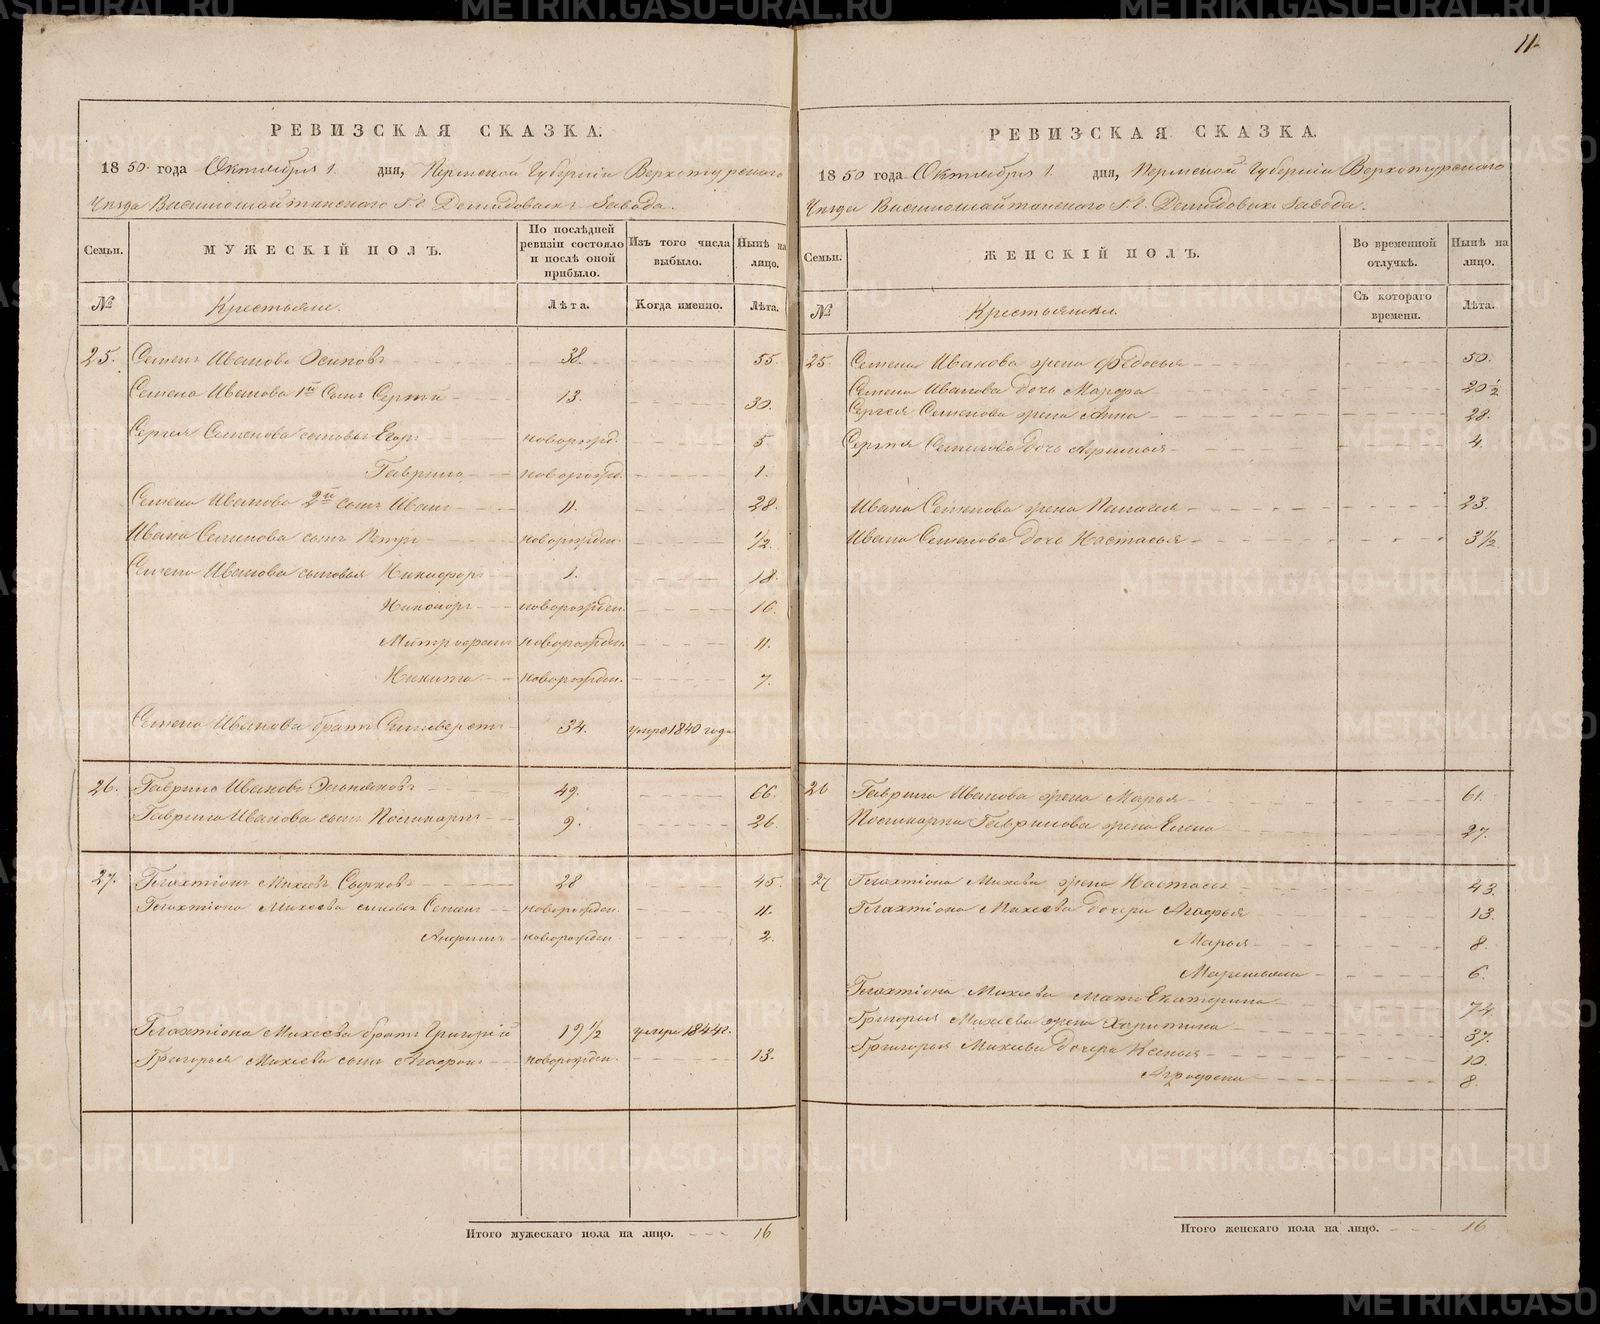 11.
РЕВИЗСКАЯ СКАЗКА.
1850 года Октября 1. дня, Пермской Губерніи Верхотурскаго
Уѣзда Висимошайтанскаго Г.г. Демидовыхъ Завода.
Семьи.
МУЖЕСКІЙ ПОЛЪ.
По послѣдней ревизіи состояло и послѣ оной прибыло.
Изъ того числа выбыло.
Нынѣ на лицо.
№
Крестьяне.
Лѣта.
Когда именно.
Лѣта.
25. Семенъ Ивановъ Осиповъ 38. 55.
Семена Иванова 1й Сынъ Сергѣй 13. 30.
Сергея Семенова сыновья Егоръ новорожд. 5
Гаврило новорожд. 1.
Семена Иванова 2й сынъ Иванъ 11. 28.
Ивана Семенова сынъ Петръ новорожден. 1/2.
Семена Иванова сыновья Никифоръ 1. 18.
Никоноръ новорожден. 16.
Митрофанъ новорожден. 11.
Никита новорожден. 7.
Семена Иванова братъ Селиверстъ 34. умре 1840 года
26. Гаврило Ивановъ 49. 66.
Гаврила Иванова сынъ Поликарпъ 9. 26.
27. Галахтіонъ Михѣевъ Сырковъ 28 45.
Галахтіона Михеева сыновья Семенъ новорожден. 11.
Анфимъ новорожден. 2.
Галахтіона Михеева братъ Григорій 19 1/2 умре 1844 г.
Григорья Михеева сынъ Агафонъ новорожден. 13.
Итого мужескаго пола на лицо. 16
РЕВИЗСКАЯ СКАЗКА.
1850 года Октября 1. дня, Пермской Губерніи Верхотурскаго
Уѣзда Висимошайтанскаго Г.г. Демидовыхъ Завода.
Семьи.
ЖЕНСКІЙ ПОЛЪ.
Во временной отлучкѣ.
Нынѣ на лицо.
№
Крестьянки.
Съ котораго времени.
Лѣта.
25. Семена Иванова жена Федосья 50.
Семена Иванова дочь Марфа 20 1/2
Сергея Семенова жена Анна 28.
Сергея Семенова дочь 4.
Ивана Семенова жена Пелагея 23.
Ивана Семенова дочь Настасья 3 1/2
26 Гаврила Иванова жена Марья 61.
Поликарпа Гаврилова жена Елена 27.
27 Галахтіона Михеева жена Настасья 43.
Галахтіона Михеева дочери Агафья 13.
Марья 8.
Маремьяна 6.
Галахтіона Михеева мать Екатерина 74.
Григорья Михеева жена Харитина 37.
Григорья Михеева дочери Ксенья 10.
Аграфена 8.
Итого женскаго пола на лицо. 16
METRIKI.GASO-URAL.RU